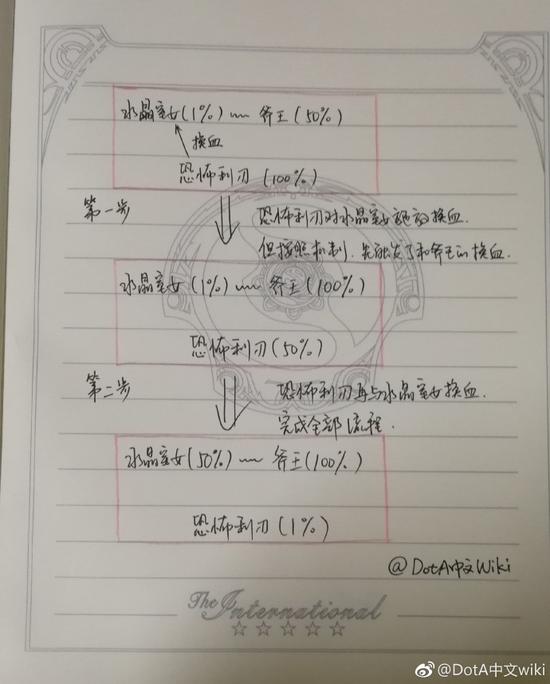 水晶室女(1%) 〰 斧王(50%)
换血
恐怖利刃 (100%)
第一步
恐怖利刃对水晶室女释放换血.
但按照机制,先触发了和斧王的换血.
水晶室女(1%) 〰 斧王(100%)
恐怖利刃(50%)
第二步
恐怖利刃再与水晶室女换血.
完成全部流程.
水晶室女(50%) 〰 斧王(100%)
恐怖利刃(1%)
@DotA中文Wiki
The International
@DotA中文wiki